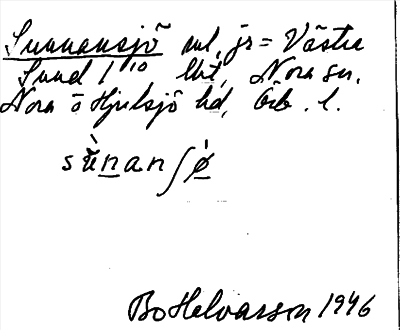 Sunnansjö ml, jr = Västra
Sund 1/10 lht, Nora sn,
Nora o Hjulsjö hd, Örb. l.
sùnanʃø̀
Bo Helvasson 1946